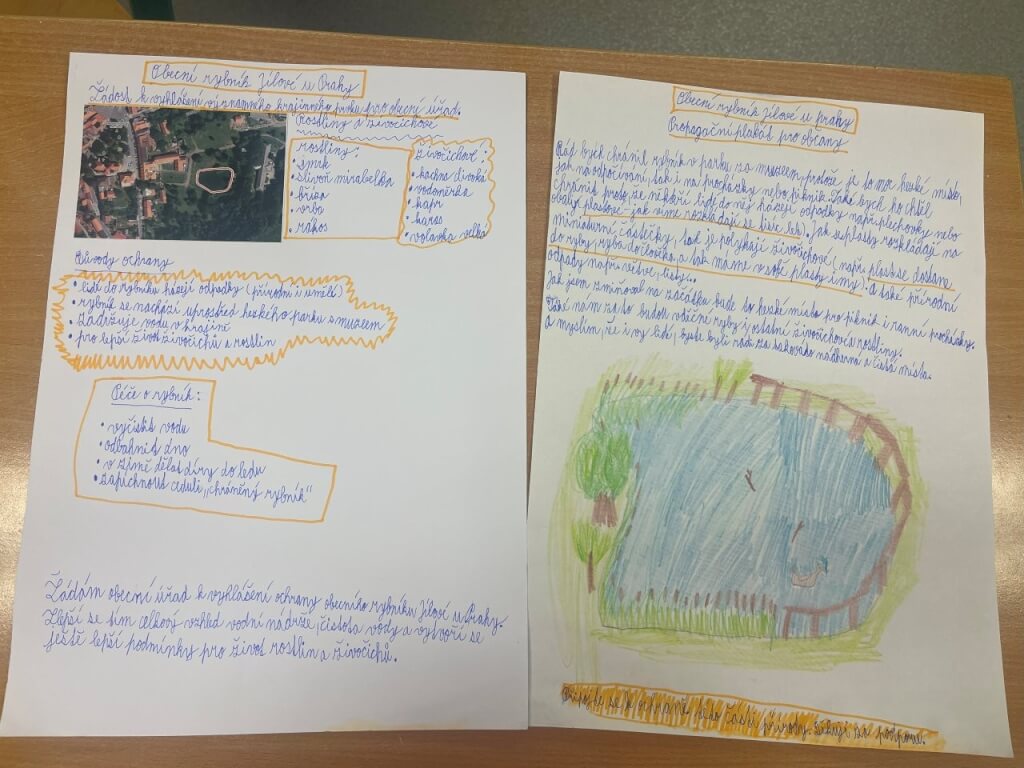 Obecní rybník Jílové u Prahy
Žádost k vyhlášení významného krajinného prvku pro obecný úřad.
Rostliny a živočichové
rostliny:
• smrk
• slivoň mirabelka
• bříza
• vrba
• rákos
živočichové:
• kachna divoká
• vodoměrka
• kapr
• karas
• volavka velká
Důvody ochrany
• lidé do rybníku házejí odpadky (přírodní i umělé)
• rybník se nachází uprostřed hezkého parku s muzeem
• zadržuje vodu v krajině
• pro lepší život živočichů a rostlin
Péče o rybník:
• vyčistit vodu
• odbahnit dno
• v zimě dělat díry do ledu
• zapíchnout ceduli „chráněný rybník"
Žádám obecní úřad k vyhlášení ochrany obecního rybníku Jílové u Prahy.
Zlepší se tím celkový vzhled vodní nádrže, čistota vody a vytvoří se
ještě lepší podmínky pro život rostlin a živočichů.
Obecní rybník Jílové u Prahy
Propagační plakát pro občany
Rád bych chránil rybník v parku za muzeem, protože je to moc hezké místo,
jak na odpočívání, tak i na procházky nebo piknik. Také bych ho chtěl
chránit proto, že někteří lidé do něj házejí odpadky např: plechovky nebo
obaly z plastů - jak víme rozkládají se tisíce let. Jak se plasty rozkládají na
miniaturní částečky, tak je polykají živočichové (např: plast se dostane
do ryby, ryba do člověka, a tak máme v sobě plasty i my). A také přírodní
odpady např: větve, listy...
Jak jsem zmiňoval na začátku bude to hezké místo pro piknik i ranní procházky.
Také nám za to budou vděčné ryby i ostatní živočichové a rostliny.
A myslím, že i vy lidé, byste byli rádi za takového nádherná a čistá místa.
Připoj se k ochraně této části přírody. Děkuji za podporu.